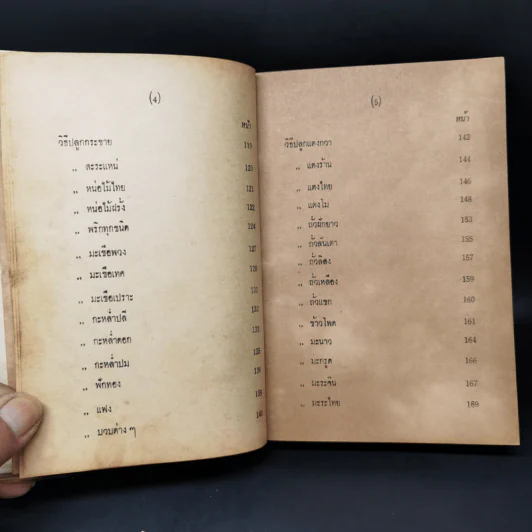 (4)
หน้า
วิธีปลูกกระชาย 119
„ สะระแหน่ 120
„ หน่อไม้ไทย 121
„ หน่อไม้ฝรั่ง 122
„ พริกทุกชนิด 124
„ มะเขือพวง 127
„ มะเขือเทศ
„ มะเขือเปราะ
„ กะหล่ำปลี
„ กะหล่ำดอก
„ กะหล่ำปม
„ ฟักทอง
„ แฟง
„ บวบต่าง ๆ
(5)
หน้า
วิธีปลูกแตงกวา 142
„ แตงร้าน 144
„ แตงไทย 146
„ แตงโม 148
„ ถั่วฝักยาว 153
„ ถั่วลันเตา 155
„ ถั่วลิสง 157
„ ถั่วเหลือง 159
„ ถั่วแขก 160
„ ข้าวโพด 161
„ มะนาว 164
„ มะกรูด 166
„ มะระจีน 167
„ มะระไทย 169